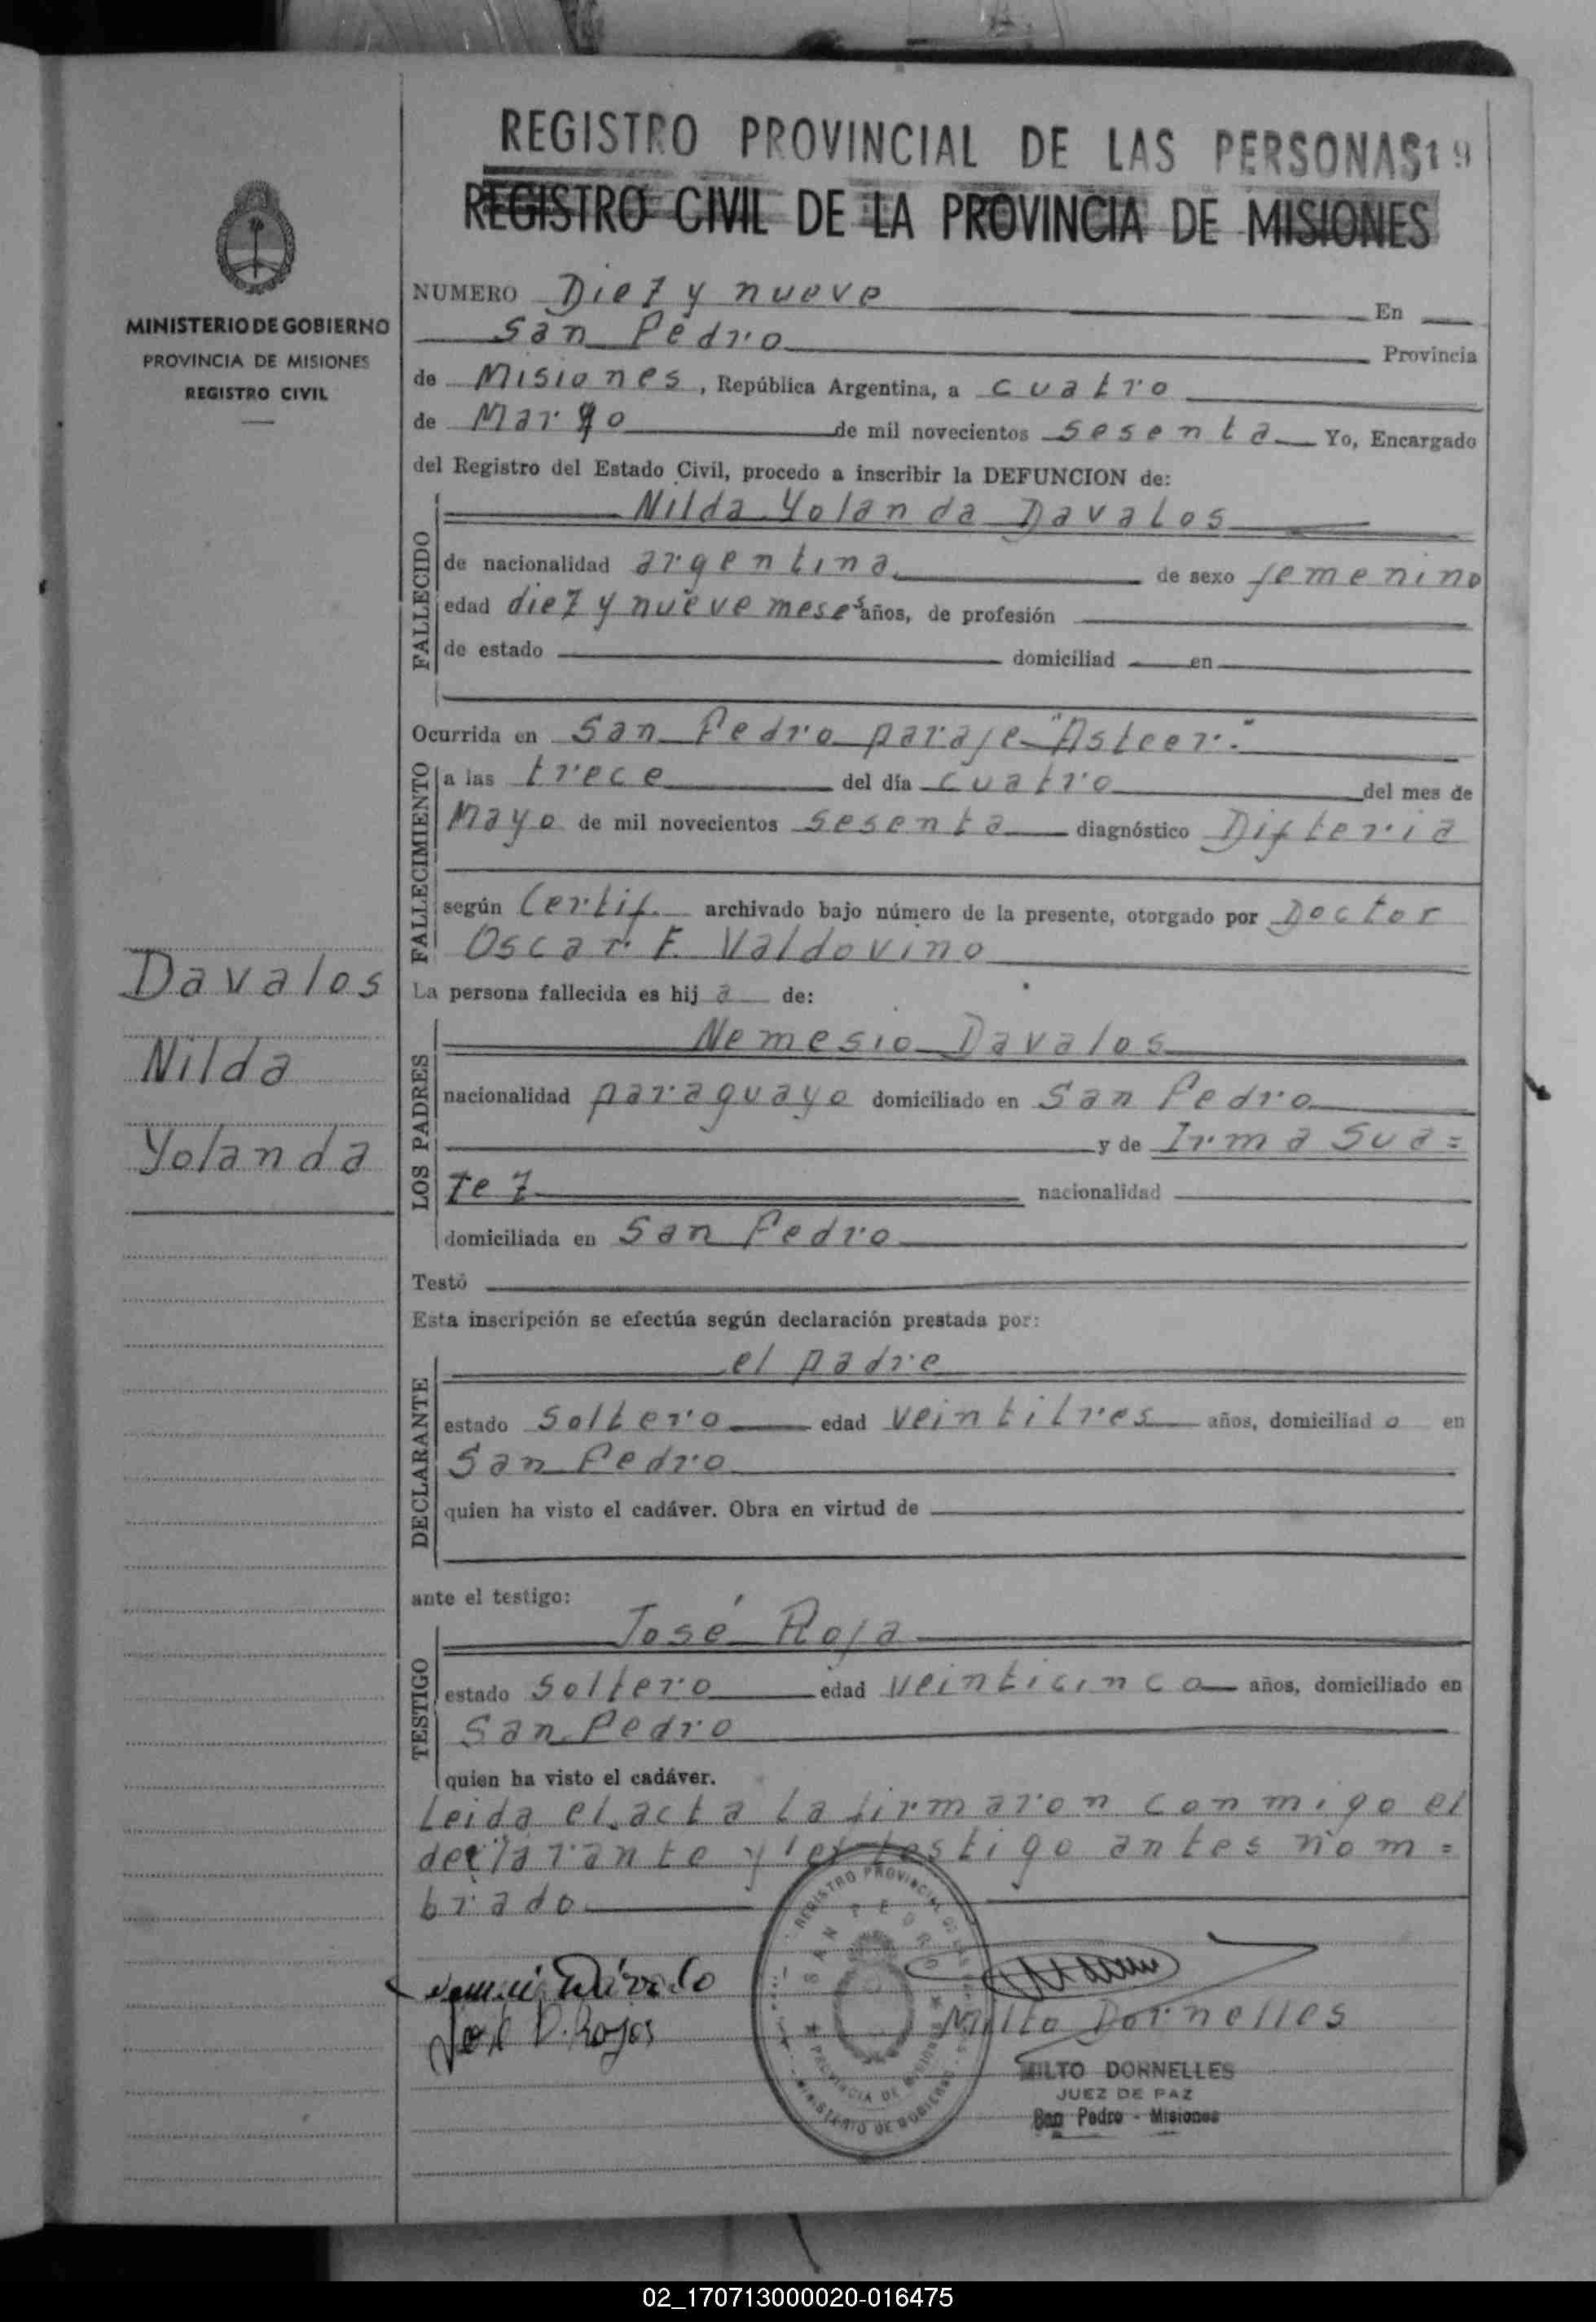 REGISTRO PROVINCIAL DE LAS PERSONAS 19
REGISTRO CIVIL DE LA PROVINCIA DE MISIONES
MINISTERIO DE GOBIERNO
PROVINCIA DE MISIONES
REGISTRO CIVIL
NUMERO Diez y nueve En
San Pedro Provincia
de Misiones, República Argentina, a cuatro
de Marzo de mil novecientos sesenta Yo, Encargado
del Registro del Estado Civil, procedo a inscribir la DEFUNCION de:
FALLECIDO
Nilda Yolanda Davalos
de nacionalidad argentina de sexo femenino
edad diez y nueve meses años, de profesión
de estado domiciliad en
Ocurrida en San Pedro paraje "Asteer."
FALLECIMIENTO
a las trece del día cuatro del mes de
Mayo de mil novecientos sesenta diagnóstico Difteria
según Certif. archivado bajo número de la presente, otorgado por Doctor
Oscar F. Valdovino
Davalos
Nilda
Yolanda
La persona fallecida es hij a de:
LOS PADRES
Nemesio Davalos
nacionalidad paraguayo domiciliado en San Pedro
y de Irma Sua=
rez nacionalidad
domiciliada en San Pedro
Testó
Esta inscripción se efectúa según declaración prestada por:
DECLARANTE
el padre
estado soltero edad veintitres años, domiciliad o en
San Pedro
quien ha visto el cadáver. Obra en virtud de
ante el testigo:
TESTIGO
José Roja
estado soltero edad veinticinco años, domiciliado en
San Pedro
quien ha visto el cadáver.
Leida el acta la firmaron conmigo el
declarante y el testigo antes nom=
brado
José D. Rojas
Milto Dornelles
MILTO DORNELLES
JUEZ DE PAZ
San Pedro - Misiones
REGISTRO PROVINCIAL DE LAS PERSONAS
SAN PEDRO
PROVINCIA DE MISIONES
MINISTERIO DE GOBIERNO
02_170713000020-016475